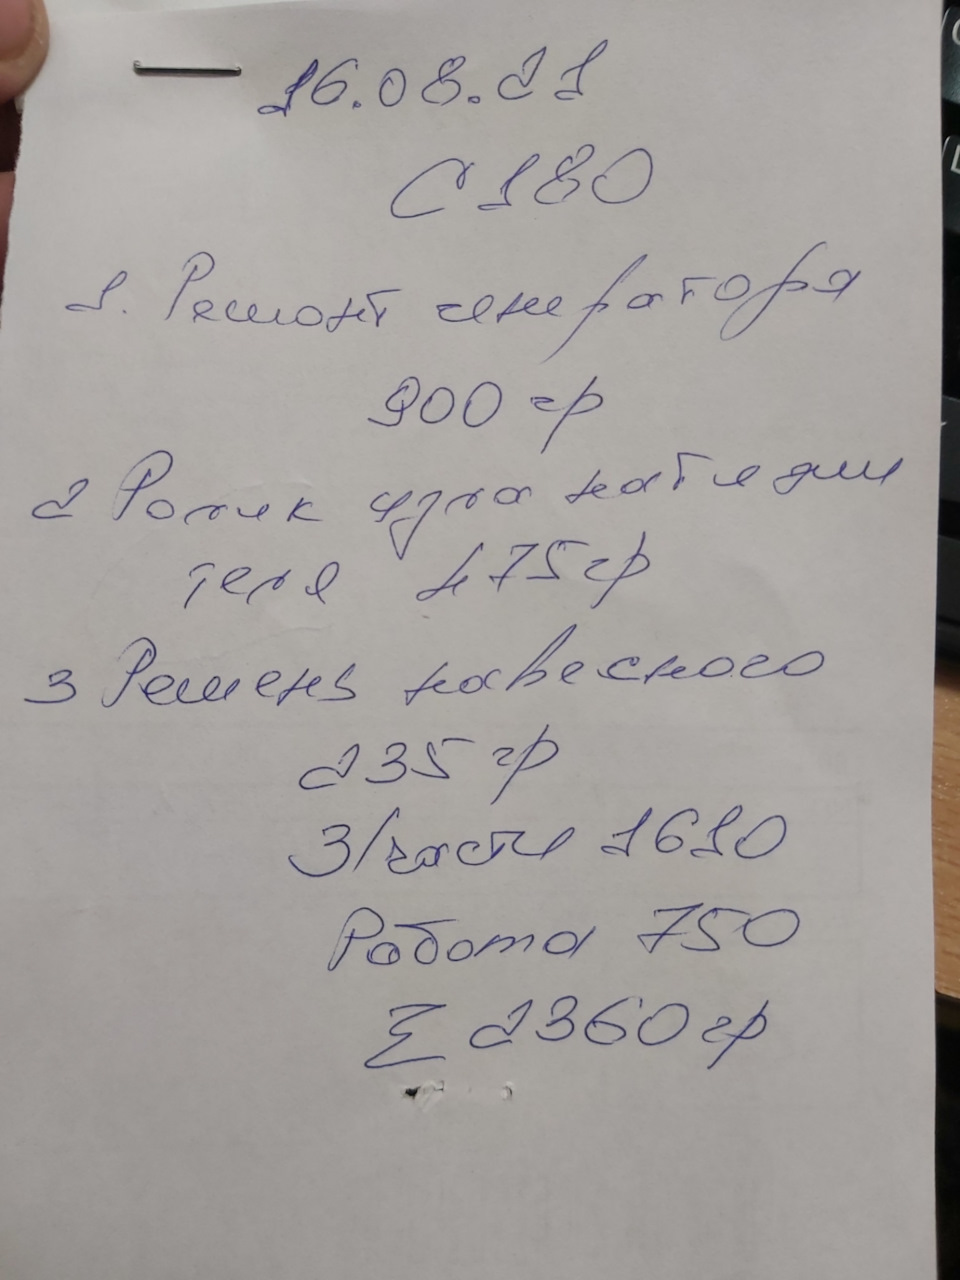 16.08.21
C180
1. Ремонт генератора
900 гр
2 Ролик натяжи
теля 475 гр
3 Ремень навесного
235 гр
З/части 1610
Работа 750
Σ 2360 гр